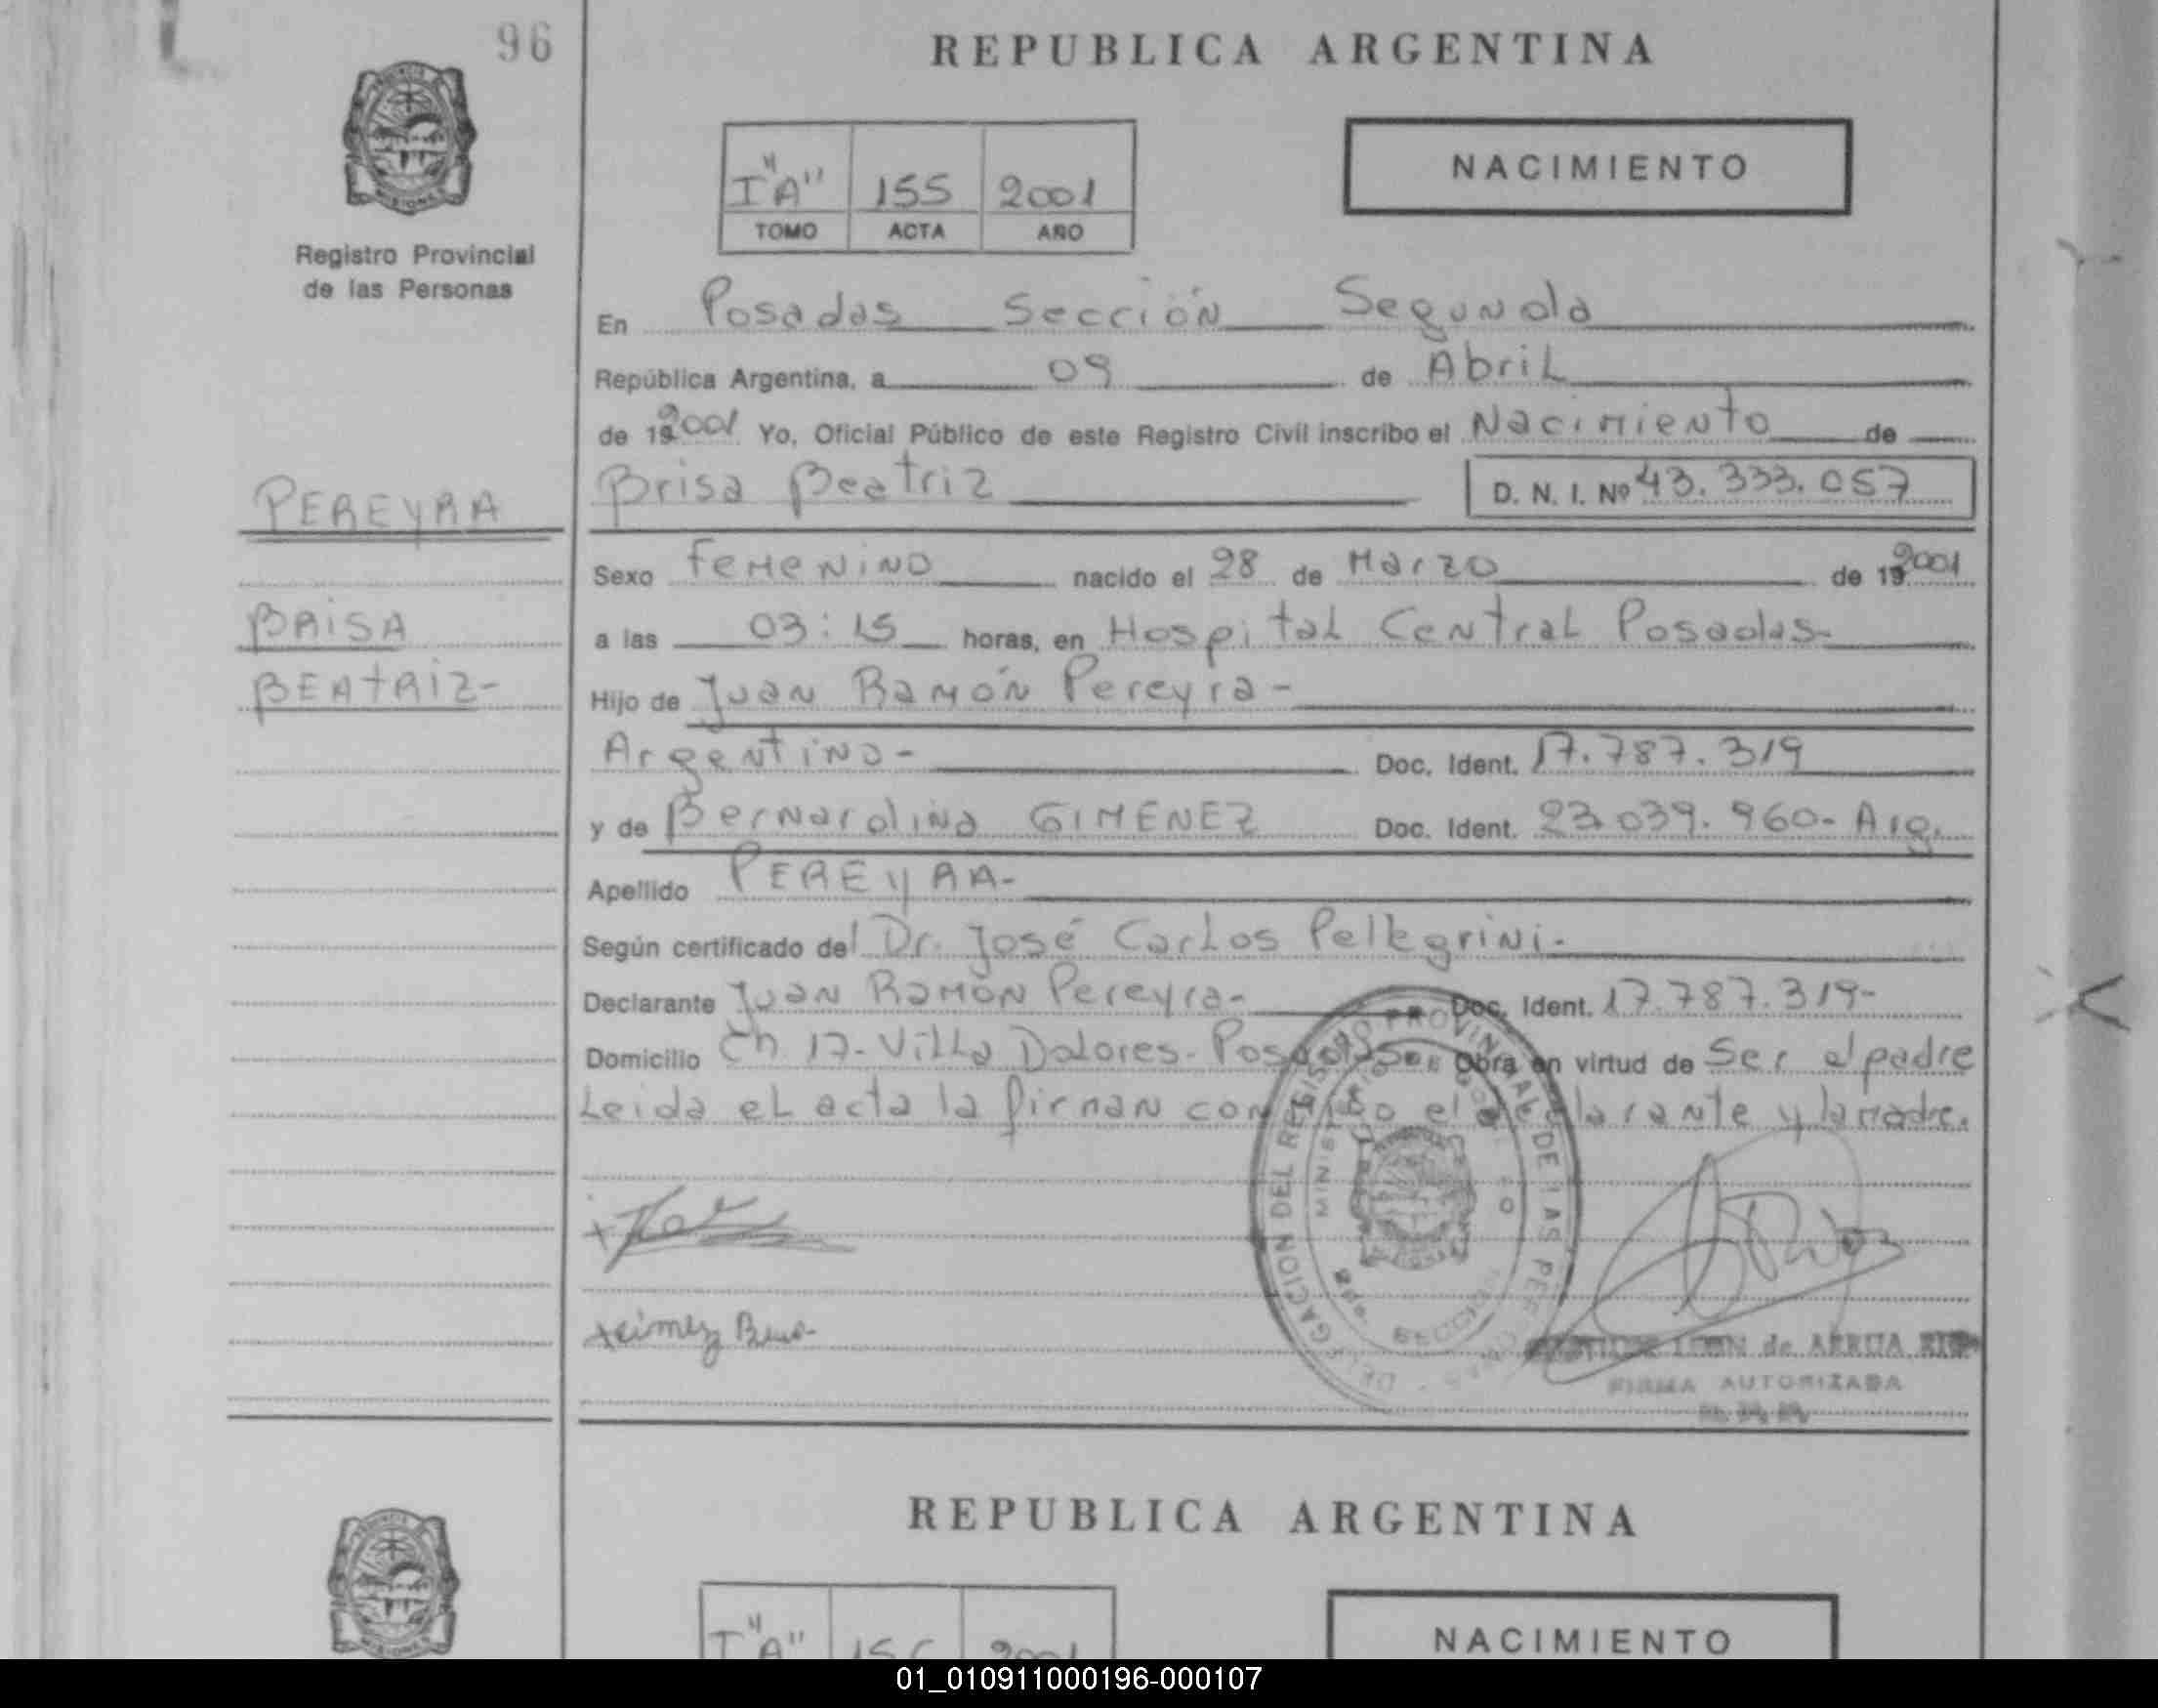 96
REPUBLICA ARGENTINA
I "A" 155 2001
TOMO ACTA AÑO
NACIMIENTO
Registro Provincial
de las Personas
En Posadas Sección Segunda
República Argentina, a 09 de Abril
de 192001 Yo, Oficial Público de este Registro Civil inscribo el Nacimiento de
PEREYRA
Brisa Beatriz D. N. I. Nº 43.333.057
Sexo Femenino nacido el 28 de Marzo de 192001
BRISA
a las 03:15 horas, en Hospital Central Posadas-
BEATRIZ-
Hijo de Juan Ramón Pereyra-
Argentino- Doc. Ident. 17.787.319
y de Bernardina GIMENEZ Doc. Ident. 23.039.960- Arg.
Apellido PEREYRA-
Según certificado del Dr. José Carlos Pellegrini-
Declarante Juan Ramón Pereyra- Doc. Ident. 17.787.319-
Domicilio Ch 17- Villa Dolores- Posadas- Obra en virtud de Ser el padre
Leida el acta la firman conmigo el declarante y la madre.
DELEGACION DEL REGISTRO PROVINCIAL DE LAS PERSONAS
de ARRUA
FIRMA AUTORIZADA
REPUBLICA ARGENTINA
I "A" 156 2001
NACIMIENTO
01_010911000196-000107